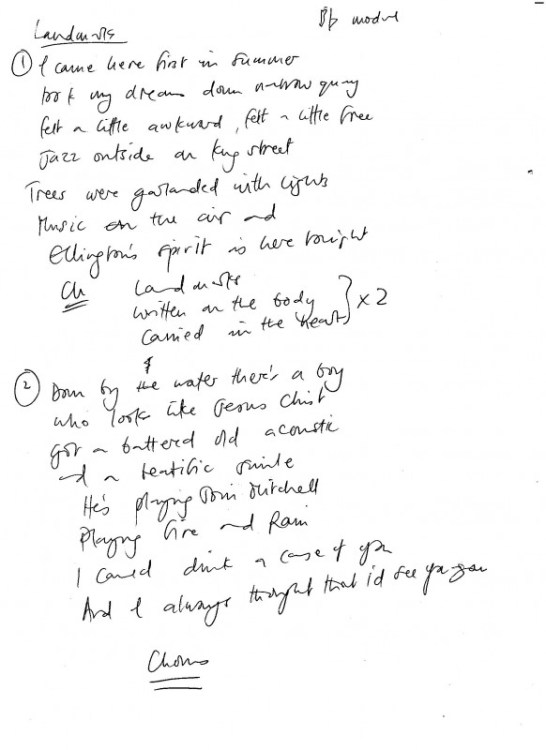 Bb modul
Landmarks
① I came here first in summer
took my dreams down narrow quay
felt a little awkward, felt a little free
Jazz outside on King street
Trees were garlanded with lights
Music on the air and
Ellington's spirit is here tonight
Ch Landmarks
written on the body
carried in the heart } x 2
② Down by the water there's a boy
who looks like Jesus Christ
got a battered old acoustic
and a beatific smile
He's playing Joni Mitchell
Playing Fire and Rain
I could drink a case of you
And I always thought that i'd see you again
Chorus